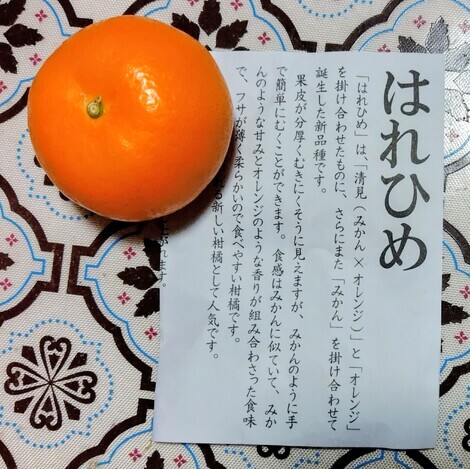 はれひめ
「はれひめ」は、「清見（みかん×オレンジ）」と「オレンジ」
を掛け合わせたものに、さらにまた「みかん」を掛け合わせて
誕生した新品種です。
果皮が分厚くむきにくそうに見えますが、みかんのように手
で簡単にむくことができます。食感はみかんに似ていて、みか
んのような甘みとオレンジのような香りが組み合わさった食味
で、フサが薄く柔らかいので食べやすい柑橘です。
る新しい柑橘として人気です。
れます。